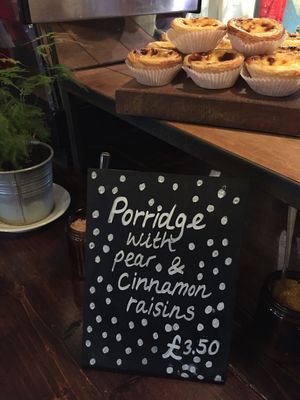 Porridge
with
pear &
Cinnamon
raisins
£3.50